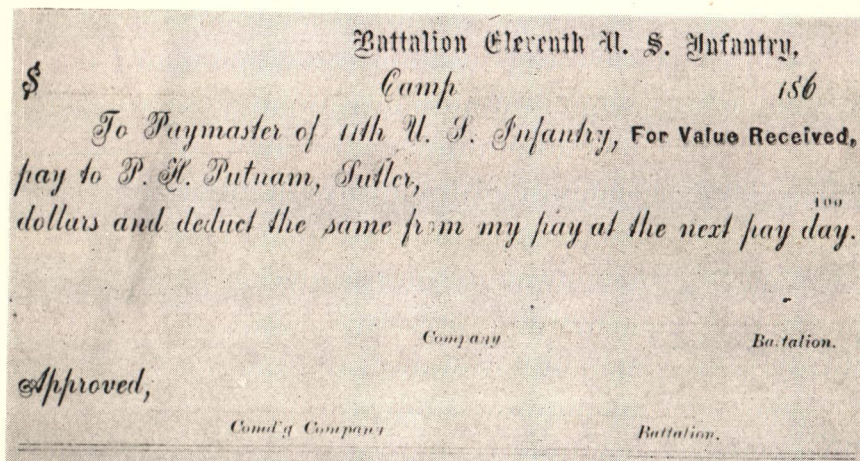 Battalion Eleventh U. S. Infantry,
$ Camp 186
To Paymaster of 11th U. S. Infantry, For Value Received,
pay to P. H. Putnam, Sutler,
100
dollars and deduct the same from my pay at the next pay day.
Company Battalion.
Approved,
Comd'g Company Battalion.